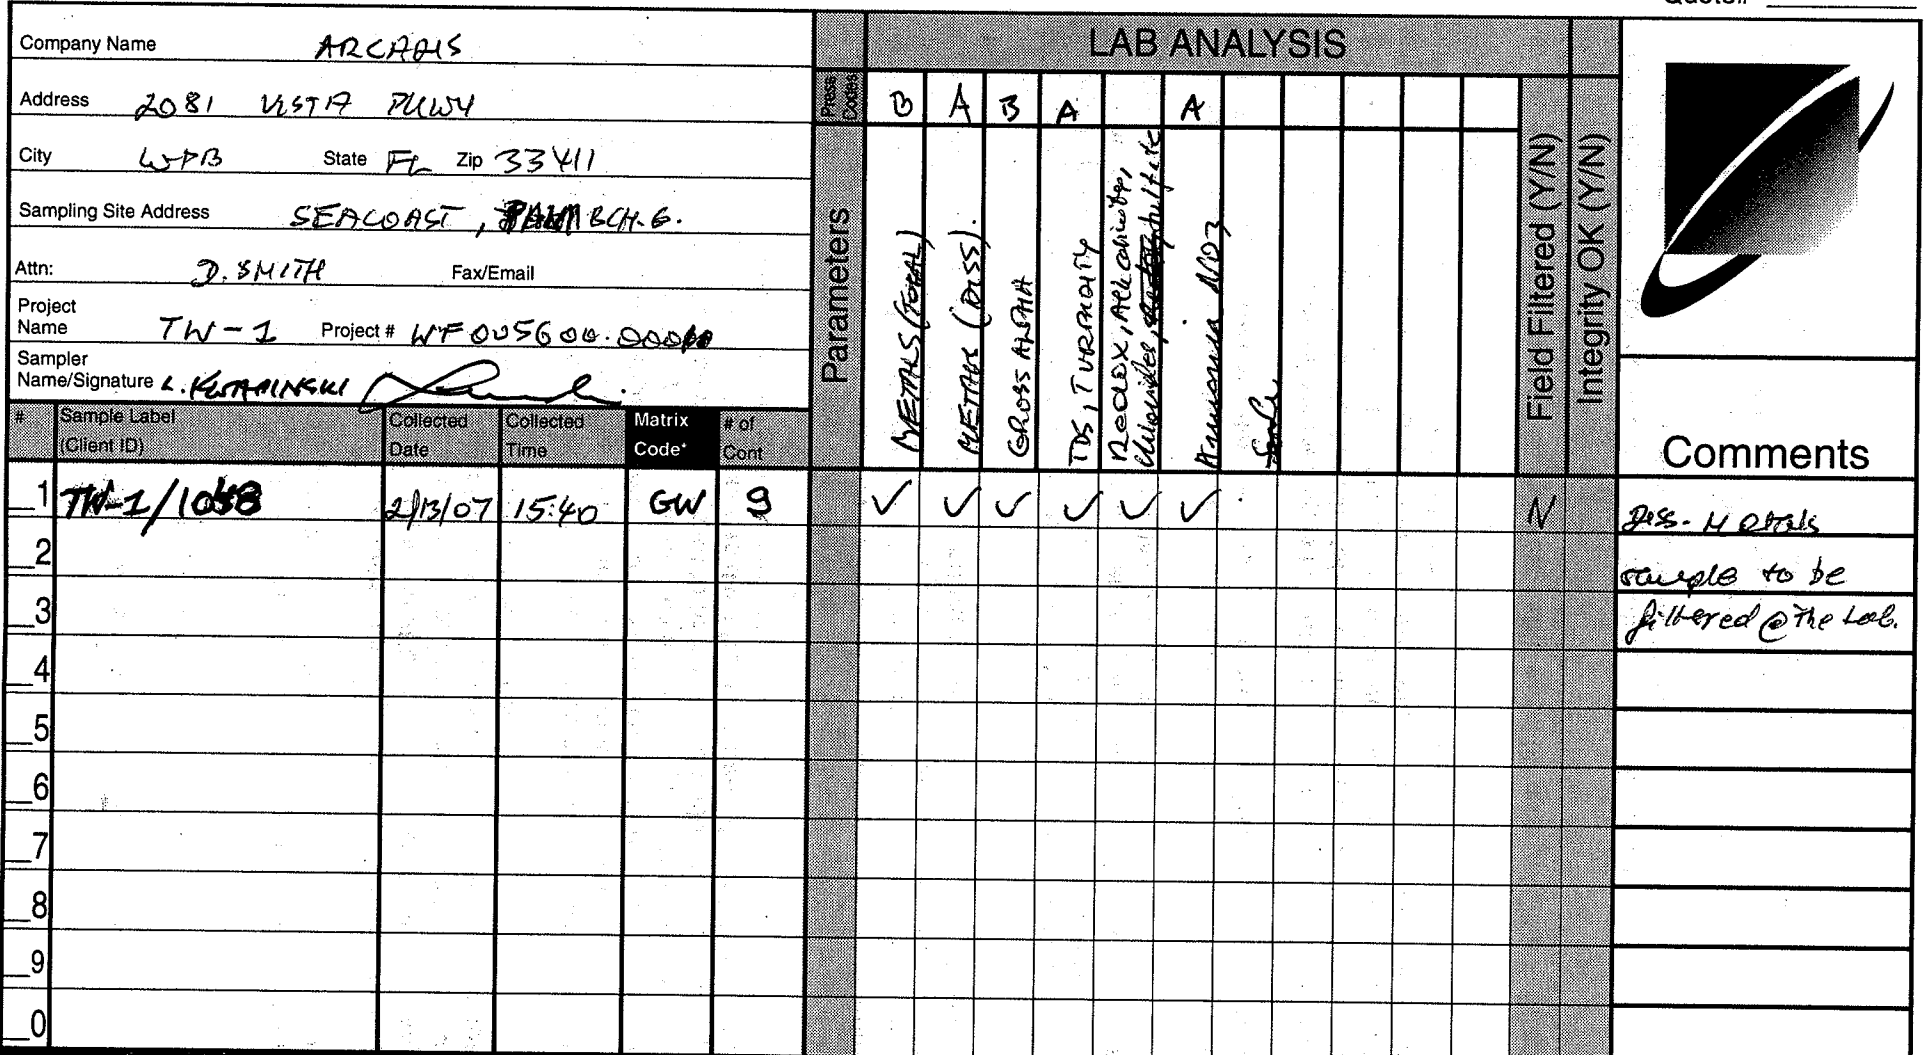 Quote#
Company Name ARCADIS
LAB ANALYSIS
Address 2081 VISTA PKWY
Pres Codes B A B A A
City WPB State FL Zip 33411
Sampling Site Address SEACOAST, PALM BCH. G.
Attn: D. SMITH Fax/Email
Project Name TW-1 Project # WF005600.000
Sampler Name/Signature L.
Parameters
METALS (TOTAL)
METALS (DISS).
GROSS ALPHA
TDS, TURBIDITY
Redox, Alkalinity,
Chlorides, sulfate
Ammonia, NO3
Field Filtered (Y/N)
Integrity OK (Y/N)
Comments
# Sample Label (Client ID) Collected Date Collected Time Matrix Code* # of Cont
1 TW-1/1058 2/13/07 15:40 GW 9 ✓ ✓ ✓ ✓ ✓ ✓ N Diss. Metals
2 sample to be
3 filtered @ the Lab.
4
5
6
7
8
9
0